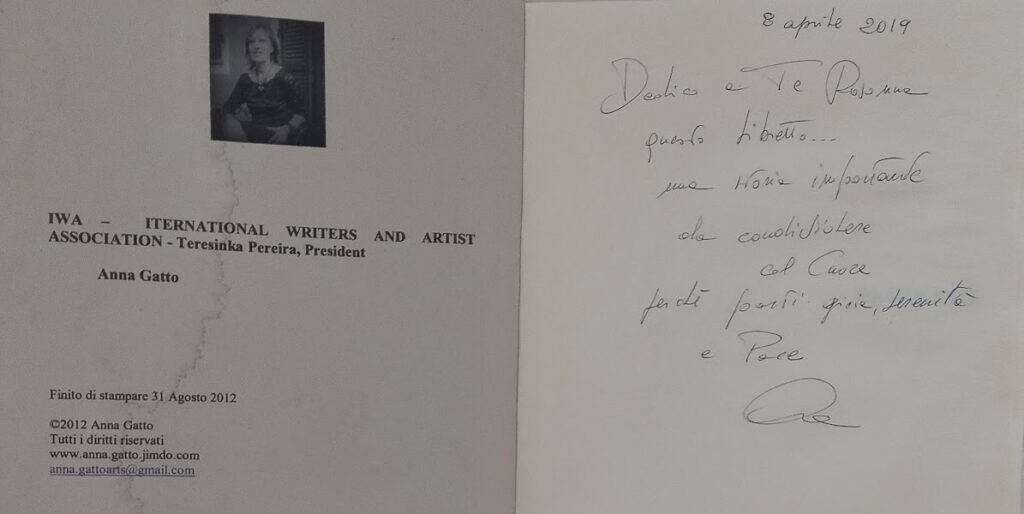 IWA – ITERNATIONAL WRITERS AND ARTIST
ASSOCIATION - Teresinka Pereira, President
Anna Gatto
Finito di stampare 31 Agosto 2012
©2012 Anna Gatto
Tutti i diritti riservati
www.anna.gatto.jimdo.com
anna.gattoarts@gmail.com
8 aprile 2019
Dedico a Te Rosanna
questo libretto...
una storia importante
da condividere
col Cuore
perché porti gioia, serenità
e Pace